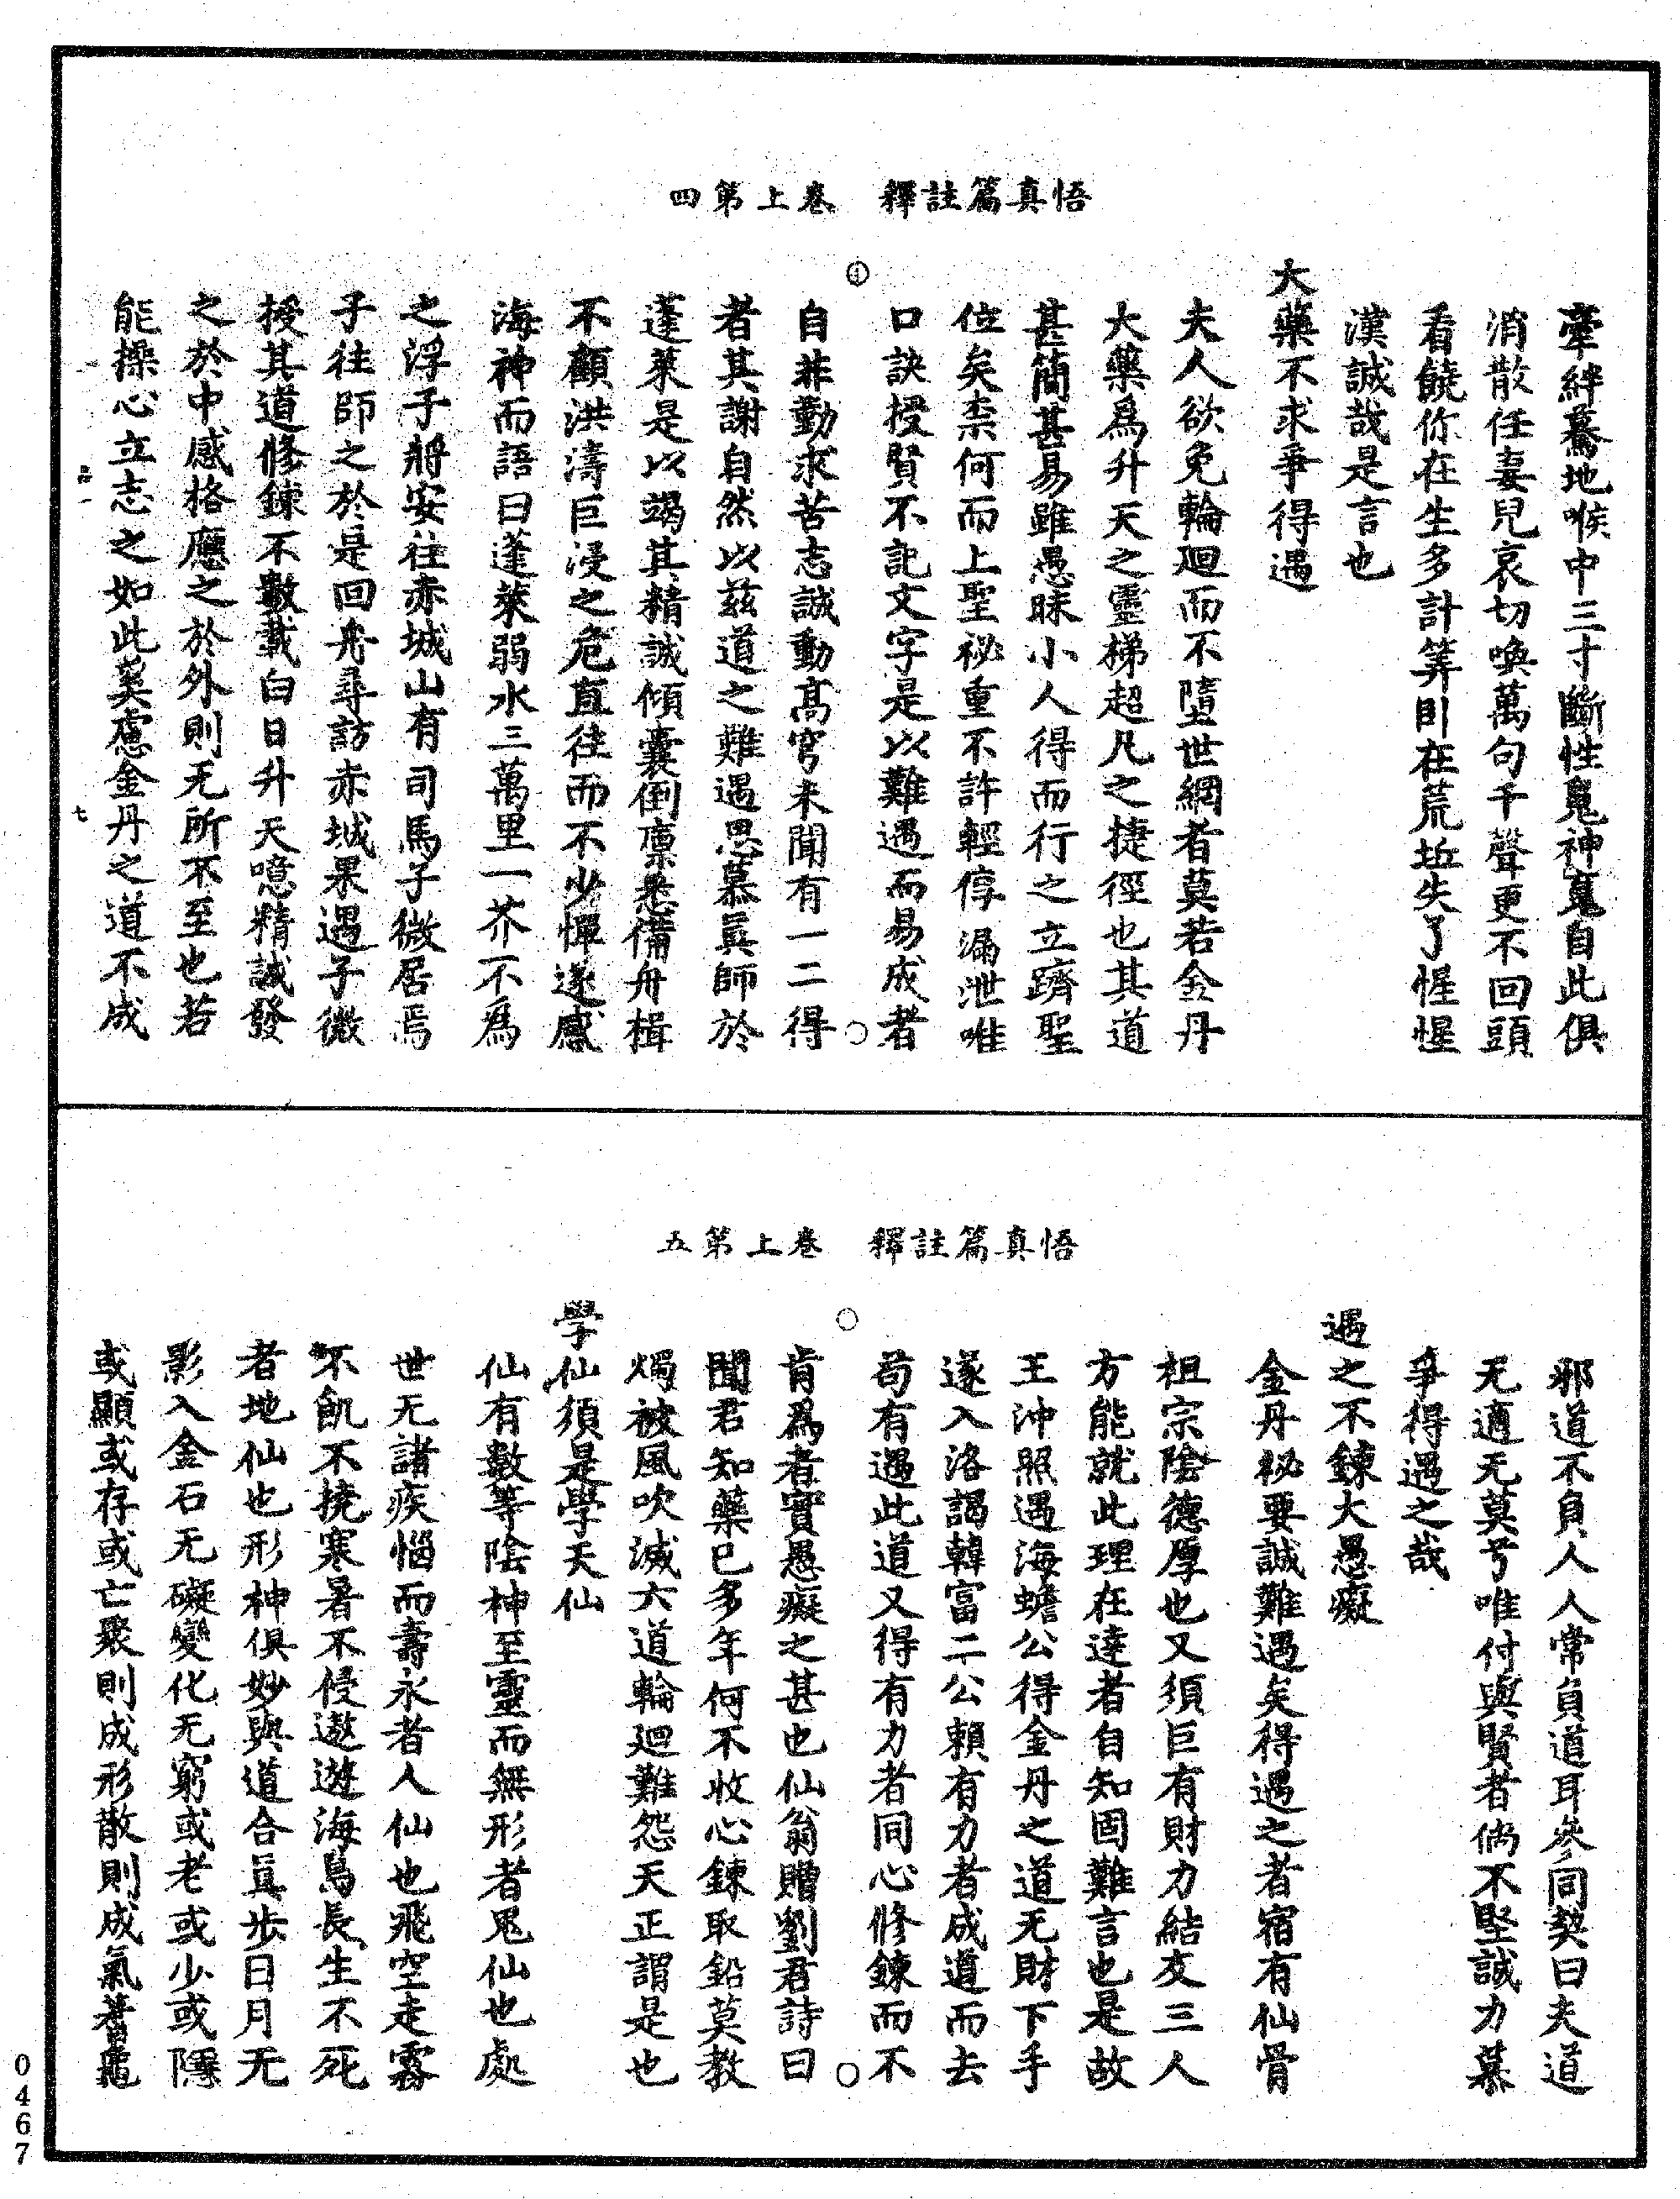 悟真篇註釋　卷上第四
牽絆驀地喉中三寸斷性鬼神蒐自此俱
消散任妻兒哀切喚萬句千聲更不回頭
看饒你在生多計筭臥在荒坵失了惺惺
漢誠哉是言也
大藥不求爭得遇
夫人欲免輪廻而不墮世網者莫若金丹
大藥爲升天之靈梯超凡之捷徑也其道
甚簡甚易雖愚昧小人得而行之立躋聖
位矣柰何而上聖祕重不許輕傳漏泄唯
口訣授賢不記文字是以難遇而易成者
自非勤求苦志誠動髙穹未聞有一二得
者其謝自然以茲道之難遇思慕眞師於
蓬萊是以竭其精誠傾囊倒廩悉備舟楫
不顧洪濤巨浸之危直往而不少憚遂感
海神而語曰蓬萊弱水三萬里一芥不爲
之浮子將安往赤城山有司馬子微居焉
子往師之於是回舟尋訪赤城果遇子微
授其道修鍊不數載白日升天噫精誠發
之於中感格應之於外則无所不至也若
能操心立志之如此奚慮金丹之道不成
七
悟真篇註釋　卷上第五
邪道不負人人常負道耳參同契曰夫道
无適无莫兮唯付與賢者倘不堅誠力慕
爭得遇之哉
遇之不鍊大愚癡
金丹祕要誠難遇矣得遇之者宿有仙骨
祖宗陰德厚也又須巨有財力結友三人
方能就此理在達者自知固難言也是故
王沖照遇海蟾公得金丹之道无財下手
遂入洛謁韓富二公賴有力者成道而去
苟有遇此道又得有力者同心修鍊而不
肯爲者實愚癡之甚也仙翁贈劉君詩曰
聞君知藥已多年何不收心鍊取鉛莫教
燭被風吹滅六道輪廻難怨天正謂是也
學仙須是學天仙
仙有數等陰神至靈而無形者鬼仙也處
世无諸疾惱而壽永者人仙也飛空走霧
不飢不撓寒暑不侵遨遊海島長生不死
者地仙也形神俱妙與道合眞步日月无
影入金石无礙變化无窮或老或少或隱
或顯或存或亡聚則成形散則成氣蓍龜
0467